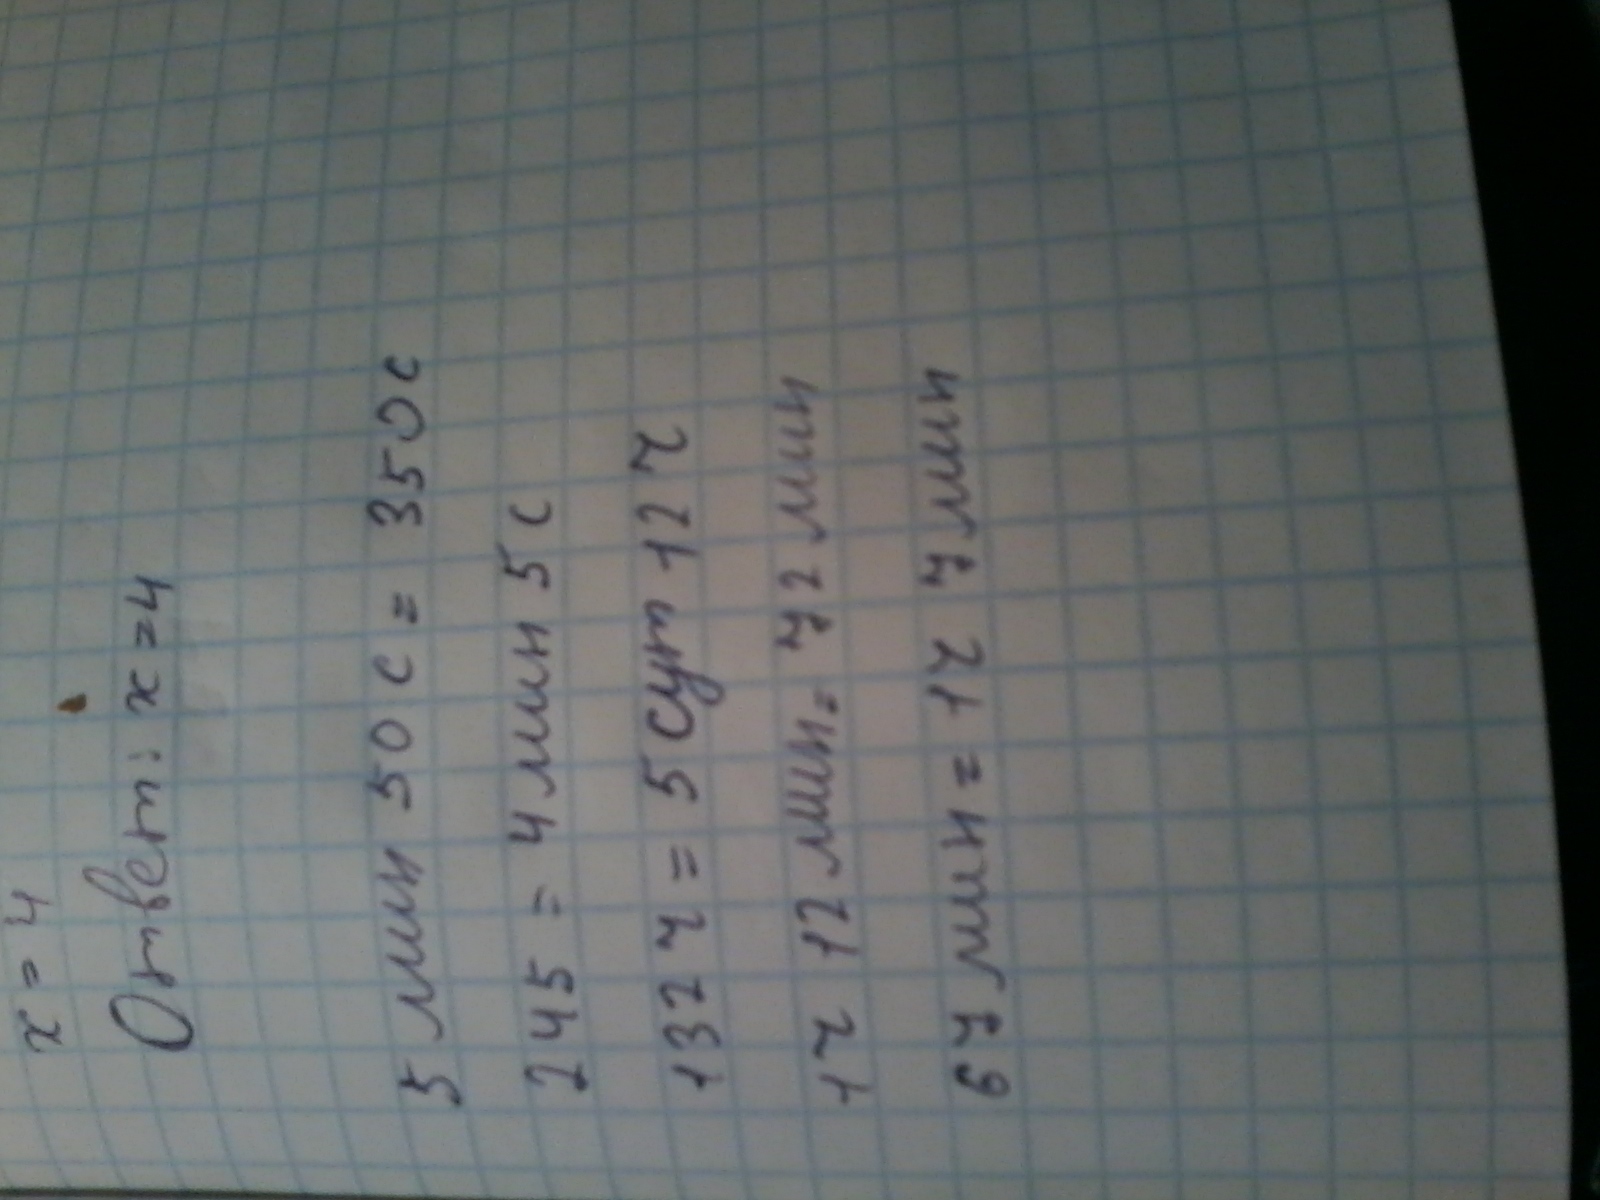 x = 4
Ответ: x = 4
5 мин 50 с = 350 с
245 = 4 мин 5 с
132 ч = 5 сут 12 ч
1 ч 12 мин = 72 мин
67 мин = 1 ч 7 мин